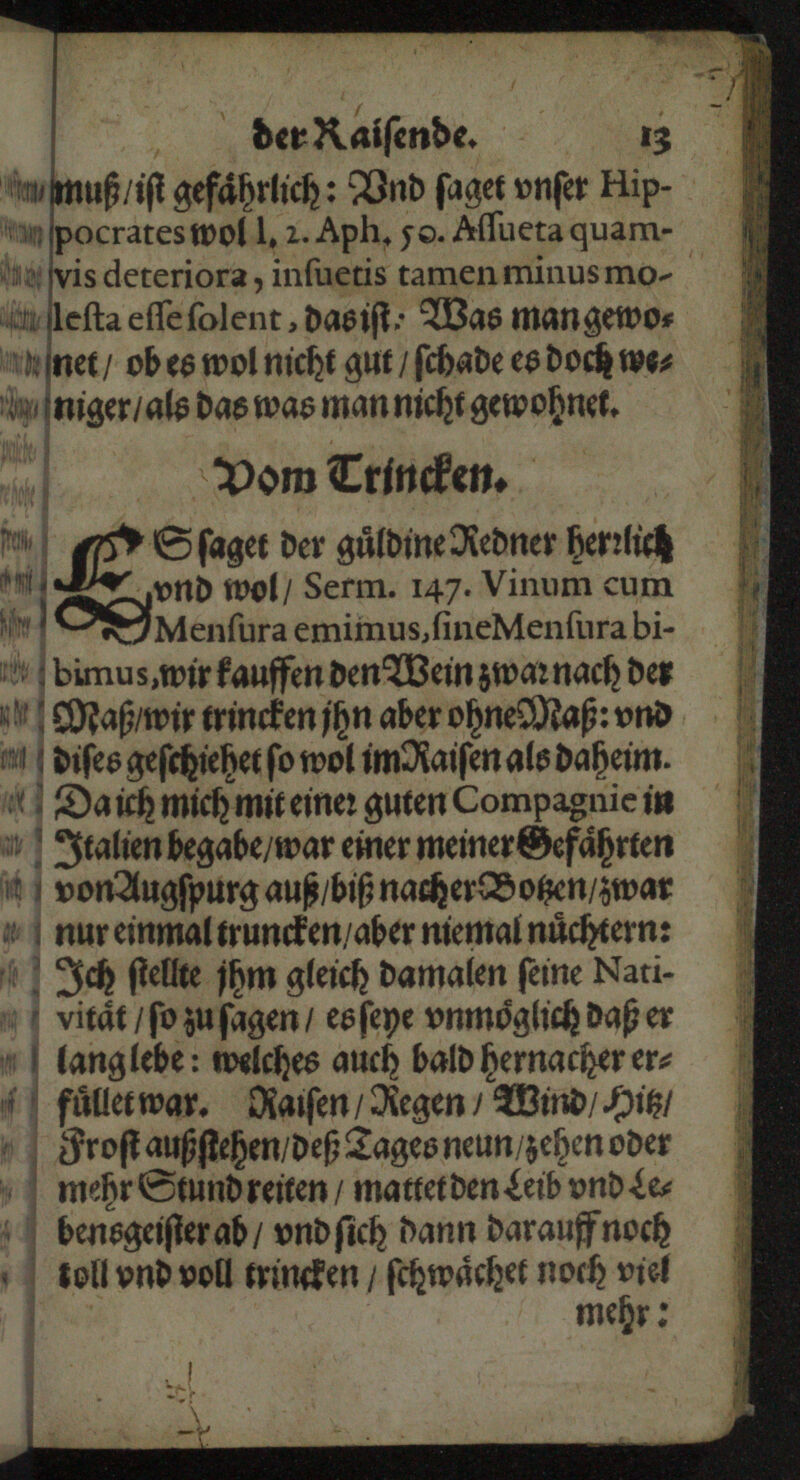 der Raiſende. 13
muß/iſt gefaͤhrlich: Vnd ſaget vnſer Hip-
pocrates wol l. 2. Aph. 50. Aſſueta quam-
vis deteriora, inſuetis tamen minus mo-
leſta eſſe ſolent, das iſt: Was man gewo-
net/ ob es wol nicht gut / ſchade es doch we-
niger/als das was man nicht gewohnet.
Vom Trincken.
ES ſaget der guͤldine Redner herꝛlich
vnd wol/ Serm. 147. Vinum cum
Menſura emimus, ſine Menſura bi-
bimus, wir kauffen den Wein zwaꝛ nach der
Maß/wir trincken jhn aber ohne Maß: vnd
diſes geſchiehet ſo wol im Raiſen als daheim.
Da ich mich mit eineꝛ guten Compagnie in
Italien begabe/war einer meiner Gefaͤhrten
von Augſpurg auß/biß nacher Botzen/zwar
nur einmal truncken/aber niemal nuͤchtern:
Ich ſtellte jhm gleich damalen ſeine Nati-
vitaͤt / ſo zu ſagen / es ſeye vnmoͤglich daß er
lang lebe: welches auch bald hernacher er-
fuͤllet war. Raiſen / Regen / Wind/ Hitz/
Froſt außſtehen/deß Tages neun/zehen oder
mehr Stund reiten / mattet den Leib vnd Le-
bensgeiſter ab / vnd ſich dann darauff noch
toll vnd voll trincken / ſchwaͤchet noch viel
mehr: